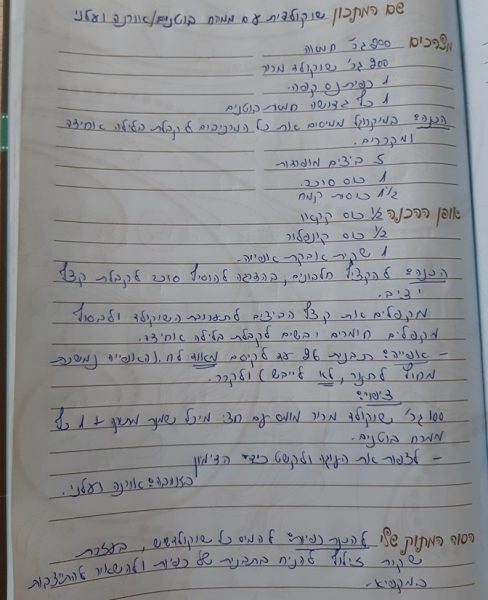 שם המתכון שוקולדית עם ממרח בוטנים/אוזניה ועלי
מצרכים
200 גר' חמאה
200 גר' שוקולד מריר
1 כפית נס קפה.
1 כף גדושה חמאת בוטנים
הכנה: במיקרוגל ממיסים את כל המרכיבים לקבלת בלילה אחידה
ומקררים.
5 ביצים מופרדות
1 כוס סוכר.
1/2 1 כוסות קמח
אופן ההכנה 1/2 כוס קקאו
1/2 כוס קינפלור
1 שקית אבקת אפייה.
הכנה: להקציף חלבונים, בהדרגה להוסיף סוכר לקבלת קצף
יציב.
מקפלים את קצף הביצים לתערובת השוקולד ולבסוף
מקפלים חומרים יבשים לקבלת בלילה אחידה.
- אופייה: תבנית 26 עד לקיסם מאוד לח. (האפייה נמשכת
מחוץ לתנור, לא לייבש) ולקרר.
ציפוי:
100 גר' שוקולד מריר מומס עם חצי מיכל שמנת מתוקה + 1 כף
ממרח בוטנים.
- לצפות את העוגה ולקשט כיד הדמיון
ועלי.
הסוד המתוק שלי להכנת כפיות: להמיס כל שוקולד שיש, בעזרת
שקית זילוף להניח בתבנית של כפיות ולהשאיר להתייצבות
במקפיא.